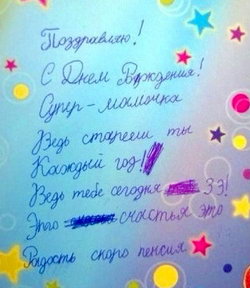 Поздравляю!
С Днем Рождения!
Супер-мамочка
Ведь стареешь ты
Каждый год!
Ведь тебе сегодня 33!
Этого счастья это
Радость скоро пенсия